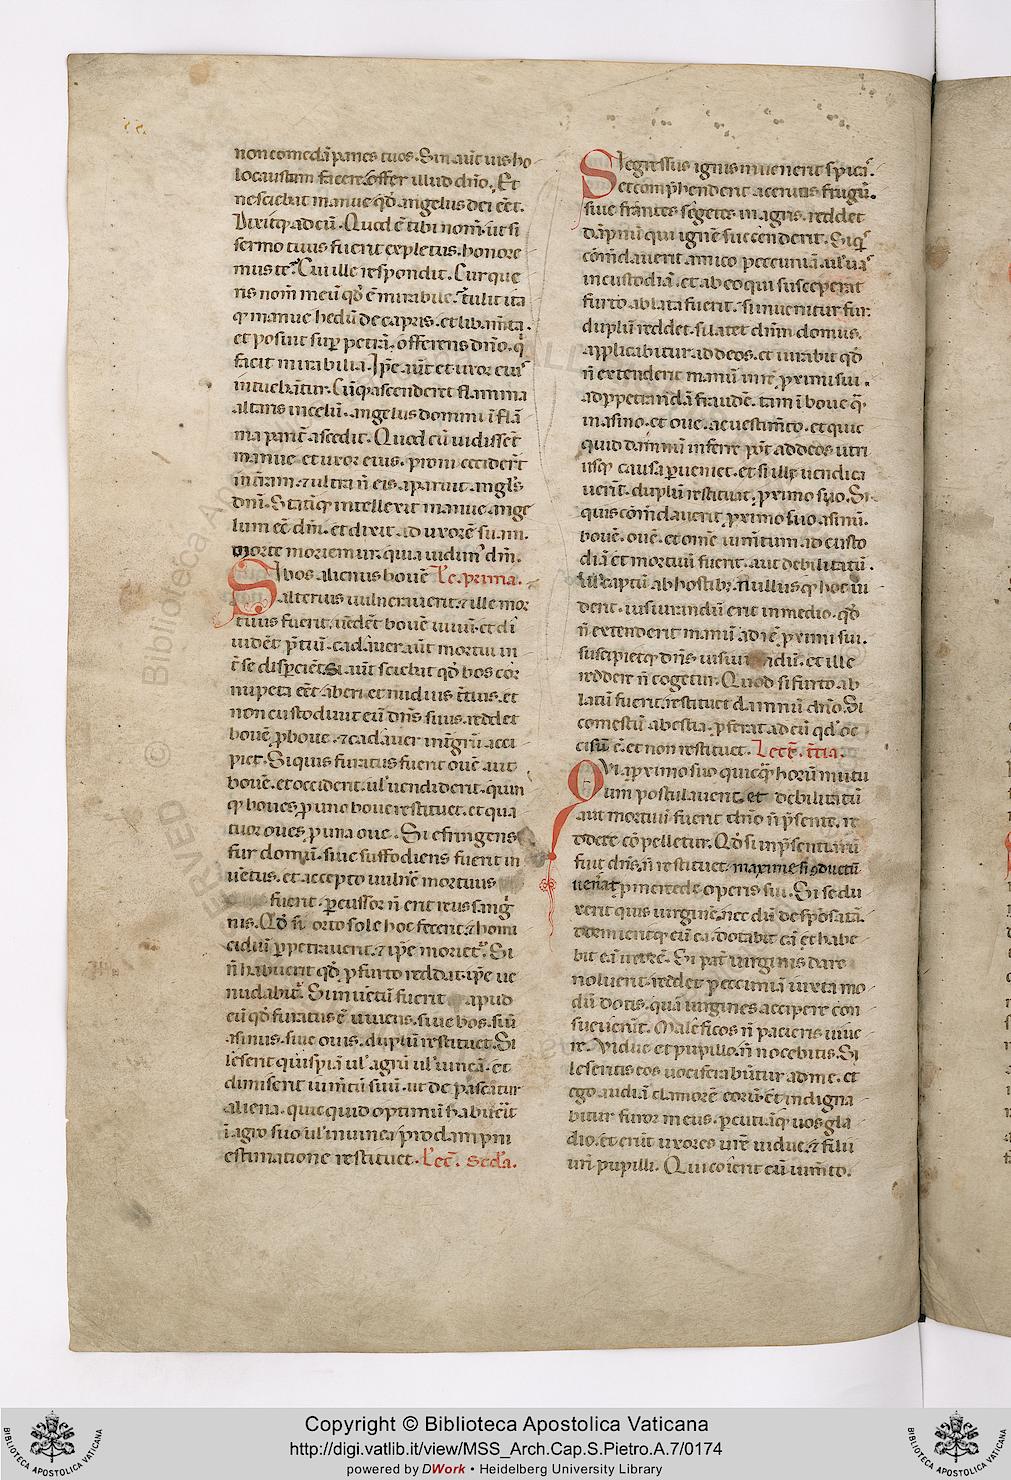 non comedā panes tuos. Sin aūt uis ho
locaustum facere offer illud dño. Et
nesciebat manue qd̄ angelus dei eēt.
Dixitq; ad eū. Quod ē tibi nom̄. ut si
sermo tuus fuerit expletus. honore
mus te. Cui ille respondit. Cur que
ris nom̄ meū qd̄ ē mirabile. Tulit ita
q; manue hedū de capris. et libam̄ta.
et posuit sup̄ petrā. offerens dño. q
facit mirabilia. Ip̄e aūt et uxor eius
intuebāntur. Cūq; ascenderet flamma
altaris in celū. angelus domini ī flā
ma parit̄ ascēdit. Quod cū uidissēt
manue et uxor eius. proni cecider̄t
in t̄ram. ⁊ ultra n̄ eis aparuit angls̄
dn̄i. Statīq; intellexit manue ange
lum eē dn̄i. et dixit ad uxorē suam.
morte moriemur. quia uidim' dn̄m.
Si bos alienus bouē Lc̄. prima.
alterius uulnerauerit. ⁊ ille mor
tuus fuerit. uēdēt bouē uiuū. et di
uidēt p̄tiū. cadauer aūt mortui in
t̄ se disp̄cient. Si aūt sciebat qd̄ bos cor
nupeta eēt ab eri et nudius t̄cius. et
non custodiuit eū dn̄s suus. reddet
bouē p̄ boue. ⁊ cadauer intēgrū acci
piet. Si quis furatus fuerit ouē aut
bouē. et occiderit. ul' uendiderit. quin
q; boues p̄ uno boue restituet. et qua
tuor oues p̄ una oue. Si efringens
fur domū. siue suffodiens fuerit in
uētus. et accepto uulnē mortuus
fuerit. p̄cussor n̄ erit reus sanḡ
nis. Qd̄ si orto sole hoc fecerit. ⁊ homi
cidiū p̄petrauerit. ⁊ ip̄e moriet'. Si
n̄ habuerit qd̄ p̄ furto reddat. ip̄e ue
nūdabit'. Si inuētū fuerit apud
eū qd̄ furatus ē uiuens. siue bos. siū
asinus. siue ouis. duplū restituet. Si
leserit quispiā ul' agrū ul' uineā. et
dimiserit iumtū suū. ut de pascātur
aliena. quicquid optimū habuēit
ī agro suo ul' in uinea p̄ dampni
estimatione restituet. Lec̄. Scd̄a.
Si egressus ignis inuenerit spicā.
et comp̄henderit aceruus frugū.
siue frāntes segetes in agris. reddet
dāpnū qui ignē succenderit. Si q's
cōm̄dauerit amico peccuniā. ul' ua'
in custodiā. et ab eo qui susceperat
furto ablata fuerit. si inuenitur fur.
duplū reddet. si latet dn̄m domus.
applicabitur ad deos. et iurabit qd̄
n̄ extenderit manū in rē p̄ximi sui.
ad ppetrandā fraudē. tam ī boue q̄
in asino. et oue. ac uestim̄to. et quic
quid dāmnū inferre pōt. ad deos utri
usq; causa p̄ueniet. et si illi iudica
uerīt. duplū restituat p̄ximo suo. Si
quis cōm̄dauerit p̄ximo suo asinū.
bouē. ouē. et om̄e iumtum ad custo
diā et mortuū fuerit. aut debilitatū.
ul' captū ab hostib;. nullusq; hoc ui
derit. iusiurandū erit in medio. qd̄
n̄ extenderit manū ad rē p̄ximi sui.
suscipietq; dn̄s iusiurandū. et ille
reddere n̄ cogetur. Quod si furto ab
latū fuerit. restituet damnū dn̄o. Si
comestū a bestia. p̄ferat ad eū qd̄ oc
cisū ē. et non restituet. Lectē. t̄cia.
Qui a p̄ximo suo quicq̄ horū mutu
um postulauerit. et debilitatū
aut mortuū fuerit dn̄o n̄ p̄sente. re
ddere cōpelletur. Qd̄ si inp̄sentiarū
fuit dn̄s. n̄ restituet. maxime si ꝯductū
uenerat p̄ mercede operis sui. Si sedu
xerit quis uirginē. nec dū desp̄osatā.
dormieritq; cū ea. dotabit eā et habe
bit eā uxorē. Si pat̄ uirginis dare
noluerit. reddet peccuniā iuxta mo
dū dotis. quā uirgines accipere con
sueuerūt. Maleficos n̄ pacieris uiue
re. Vidue et pupillo. n̄ nocebitis. Si
leseritis eos uociferabūntur ad me. et
ego audiā clamorē eorū. et indigna
bitur furor meus. p̄cutiāq; uos gla
dio. et erūt uxores ur̄e uidue. ⁊ filii
ur̄i pupilli. Qui coierit cū iumto.
Copyright © Biblioteca Apostolica Vaticana
http://digi.vatlib.it/view/MSS_Arch.Cap.S.Pietro.A.7/0174
powered by DWork • Heidelberg University Library
BIBLIOTECA APOSTOLICA VATICANA
BIBLIOTECA APOSTOLICA VATICANA